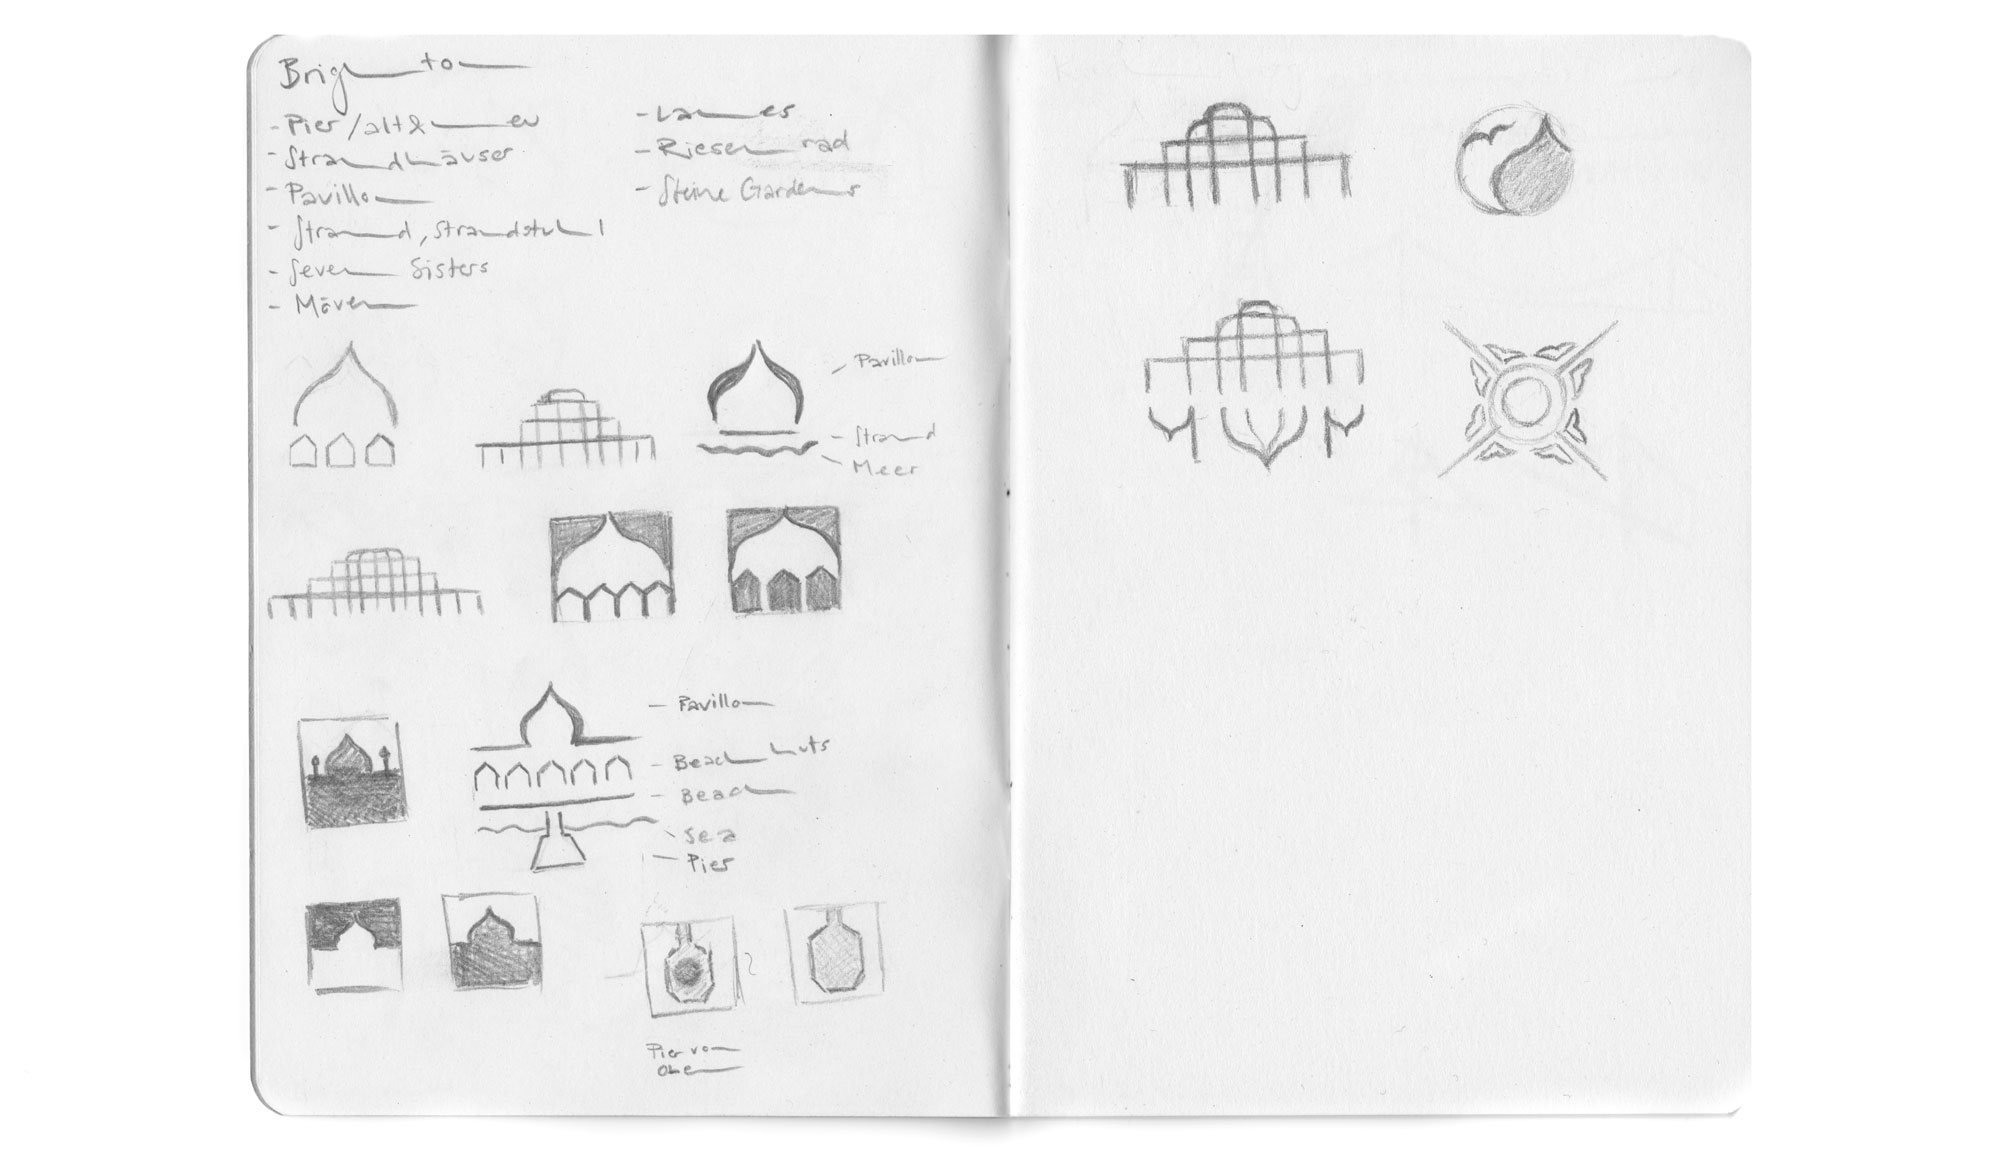 Brighton
- Pier / alt & neu
- Strandhäuser
- Pavillon
- Strand, Strandstuhl
- Seven Sisters
- Möven
- Lanes
- Riesenrad
- Steine Gardens
Pavillon
- Strand
Meer
- Pavillon
- Beach huts
- Beach
Sea
Pier
Pier von
oben